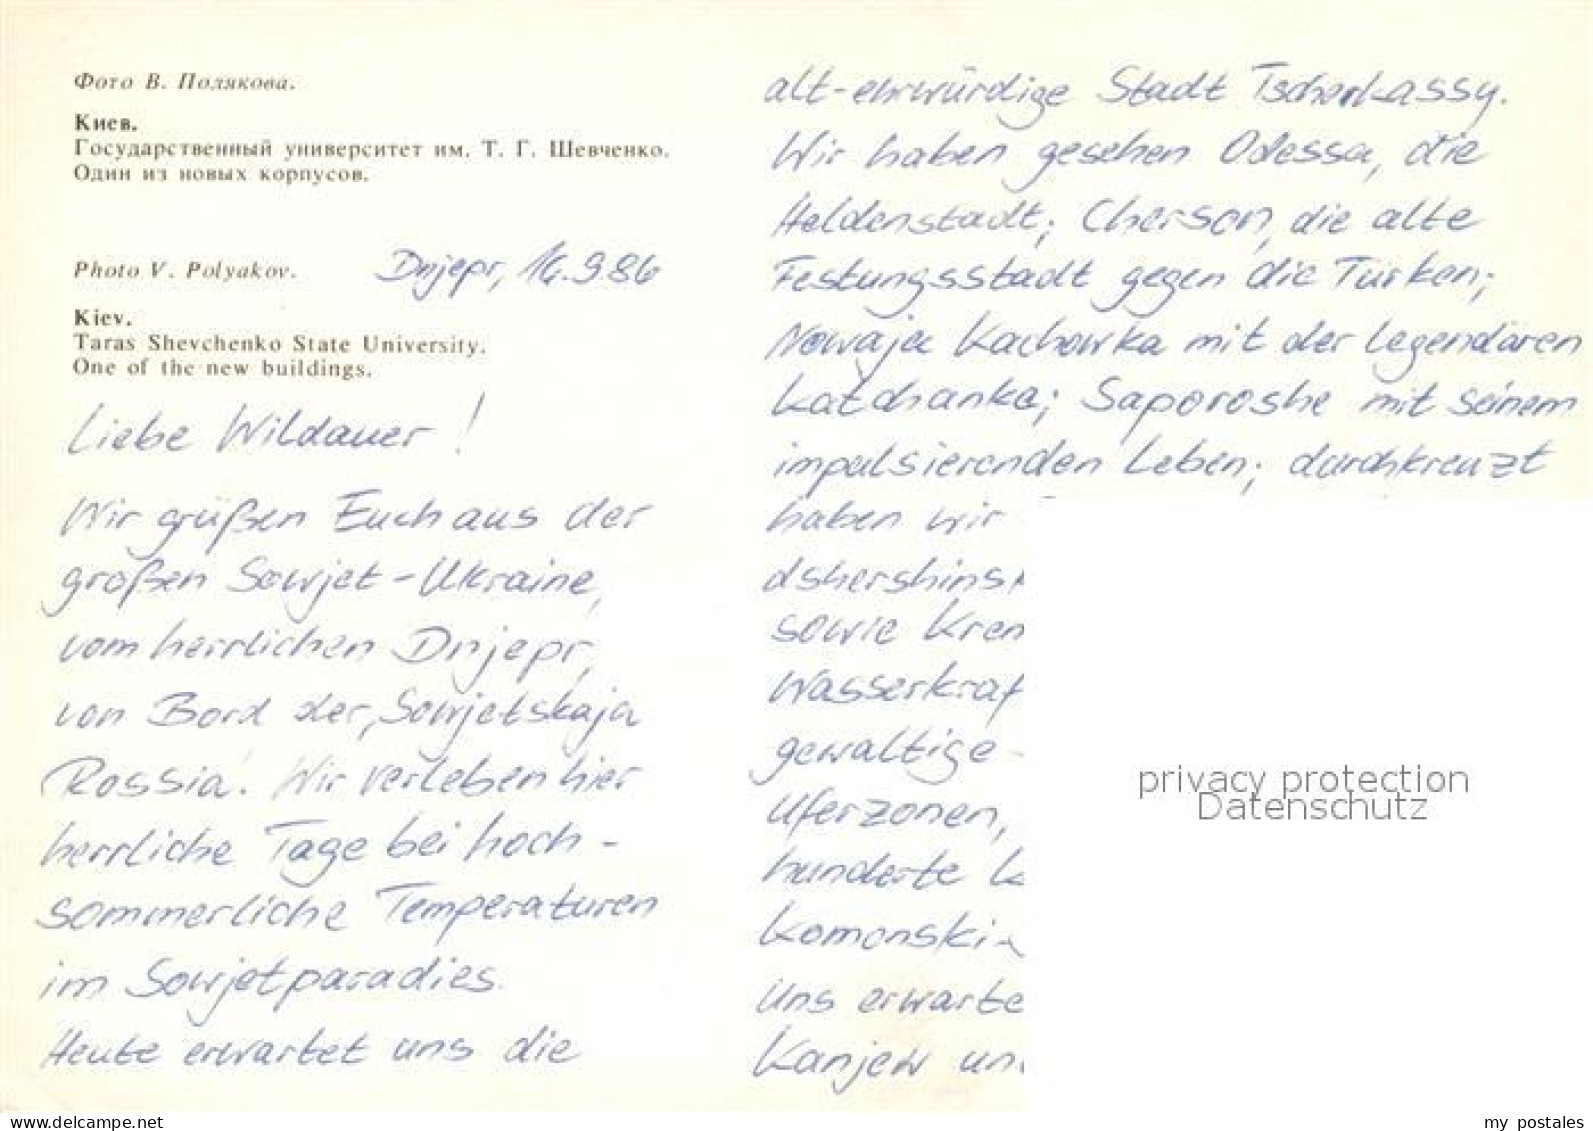 Фото В. Полякова.
Киев.
Государственный университет им. Т. Г. Шевченко.
Один из новых корпусов.
Photo V. Polyakov.
Dnjepr, 16.9.86
Kiev.
Taras Shevchenko State University.
One of the new buildings.
Liebe Wildauer!
Wir grüßen Euch aus der
großen Sowjet-Ukraine,
vom herrlichen Dnjepr,
von Bord der "Sowjetskaja
Rossia". Wir verleben hier
herrliche Tage bei hoch-
sommerliche Temperaturen
im Sowjetparadies.
Heute erwartet uns die
alt-ehrwürdige Stadt Tscherkassy.
Wir haben gesehen Odessa, die
Heldenstadt; Cherson, die alte
Festungsstadt gegen die Türken;
Nowaja Kachowka mit der legendären
Katchanka; Saporoshe mit seinem
impulsierenden Leben; durchkreuzt
haben wir
dshershinsk
sowie Kren
Wasserkraf
gewaltige
Uferzonen,
hunderte
Komonski
Uns erwarte
Kanjew un
privacy protection
Datenschutz
www.delcampe.net
my postales